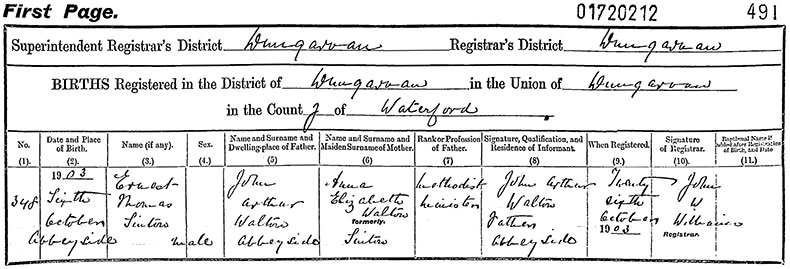 First Page. 01720212 491
Superintendent Registrar's District Dungarvan Registrar's District Dungarvan
BIRTHS Registered in the District of Dungarvan in the Union of Dungarvan
in the County of Waterford
No. (1).
Date and Place of Birth (2).
Name (if any). (3.)
Sex. (4.)
Name and Surname and Dwelling-place of Father. (5)
Name and Surname and Maiden Surname of Mother. (6)
Rank or Profession of Father. (7)
Signature, Qualification, and Residence of Informant. (8)
When Registered. (9.)
Signature of Registrar. (10.)
Baptismal Name if added after Registration of Birth, and Date (11.)
348
1903
Sixth
October
Abbeyside
Ernest
Thomas
Sinton
male
John
Arthur
Walton
Abbeyside
Anna
Elizabeth
Walton
formerly.
Sinton
Methodist
Minister
John Arthur
Walton
Father
Abbeyside
Twenty
sixth
October
1903
John
W
Williams
Registrar.